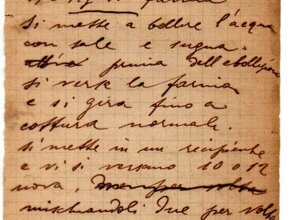 di farina
Si mette a bollire l'acqua
con sale e sugna.
prima dell'ebollizione
si versa la farina
e si gira fino a
cottura normale.
si mette in un recipiente
e vi si versano 10 o 12
uova,
mischiandoli due per volta